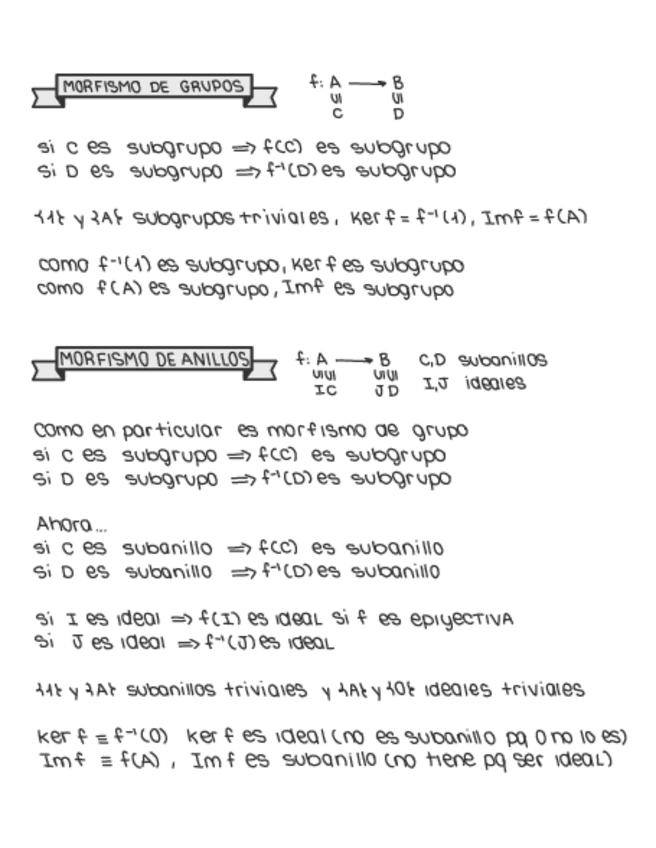 MORFISMO DE GRUPOS f: A → B
UI UI
C D
si C es subgrupo ⇒ f(C) es subgrupo
si D es subgrupo ⇒ f⁻¹(D) es subgrupo
{1} y {A} subgrupos triviales, Ker f = f⁻¹(1), Imf = f(A)
como f⁻¹(1) es subgrupo, Ker f es subgrupo
como f(A) es subgrupo, Imf es subgrupo
MORFISMO DE ANILLOS f: A → B C,D subanillos
UIUI UIUI I,J ideales
I C J D
Como en particular es morfismo de grupo
si C es subgrupo ⇒ f(C) es subgrupo
si D es subgrupo ⇒ f⁻¹(D) es subgrupo
Ahora...
si C es subanillo ⇒ f(C) es subanillo
si D es subanillo ⇒ f⁻¹(D) es subanillo
si I es ideal ⇒ f(I) es ideal si f es epiyectiva
si J es ideal ⇒ f⁻¹(J) es ideal
{1} y {A} subanillos triviales y {A} y {0} ideales triviales
ker f ≡ f⁻¹(0) ker f es ideal (no es subanillo pq 0 no lo es)
Imf ≡ f(A), Imf es subanillo (no tiene pq ser ideal)